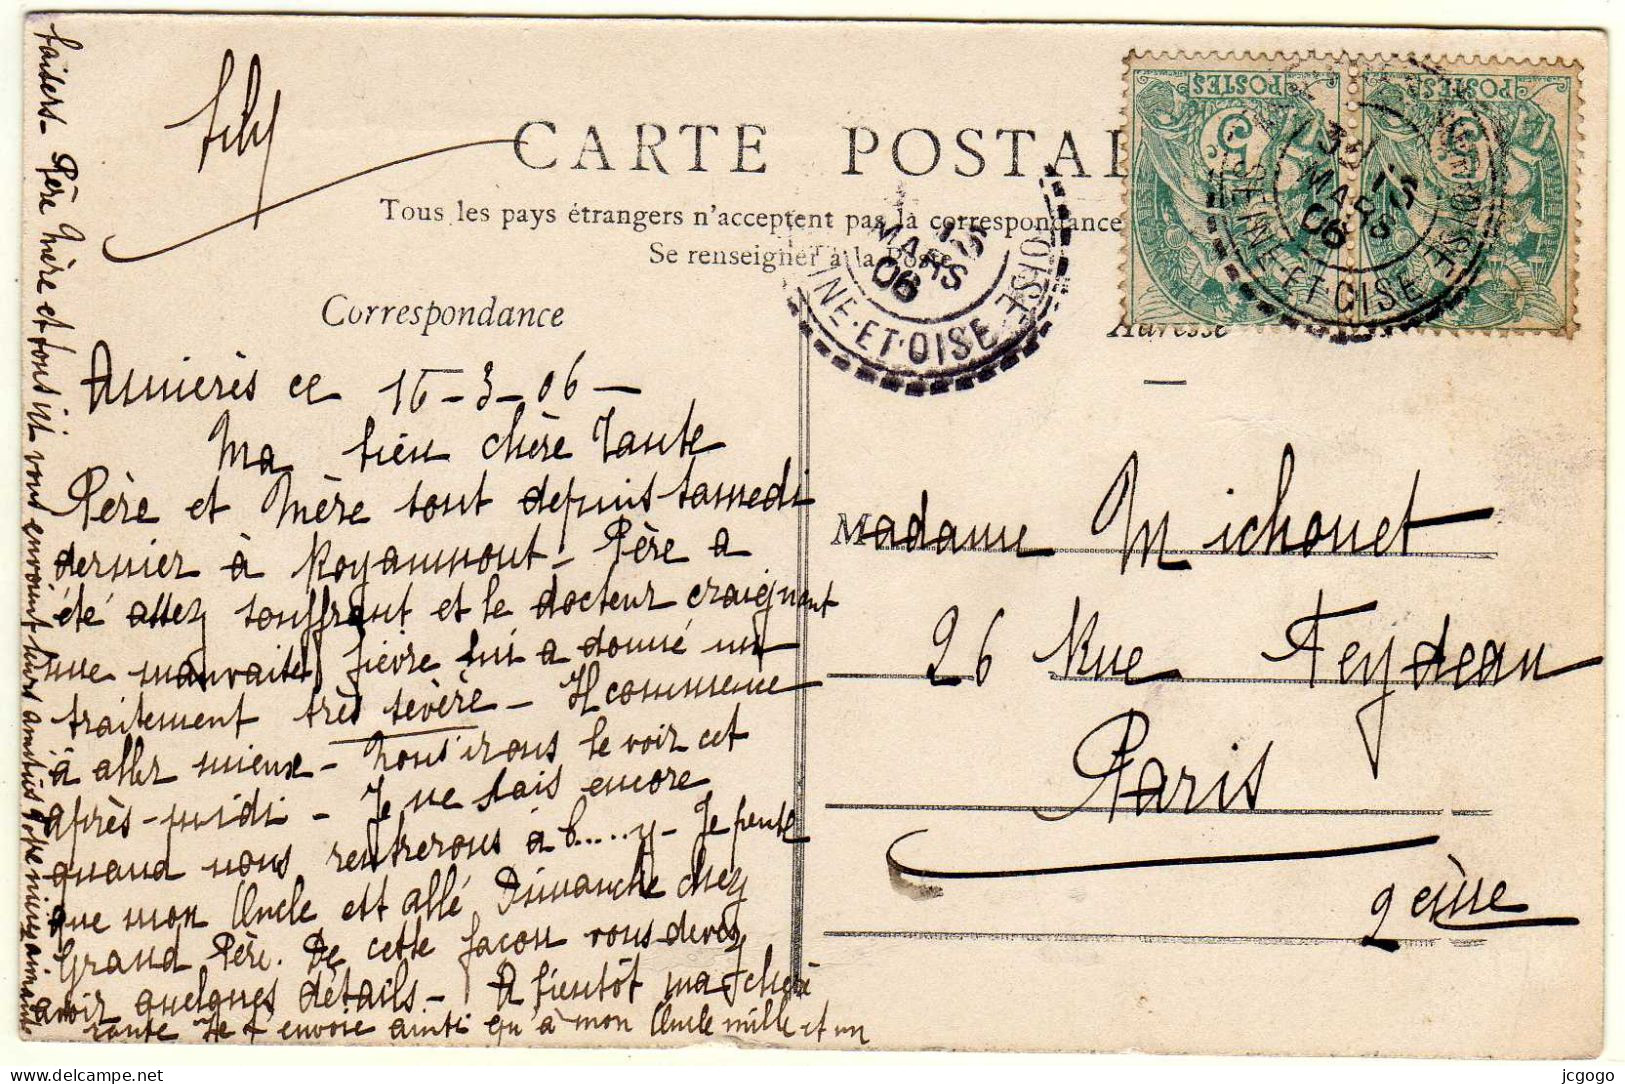 CARTE POSTAL
Tous les pays étrangers n'acceptent pas la correspondance
Se renseigner à la Poste
Correspondance
Adresse
POSTES
POSTES
MARS
06
SEINE-ET-OISE
15
MARS
06
INE-ET-OISE
Asnières ce 15-3-06-
Ma bien chère Tante
Père et Mère sont depuis samedi
dernier à Royaumont - Père a
été assez souffrant et le docteur craignant
une mauvaise fièvre lui a donné un
traitement très sévère - Il commence
à aller mieux - Nous irons le voir cet
après-midi - Je ne sais encore
quand nous rentrerons à b.....y - Je pense
que mon Uncle est allé Dimanche chez
Grand Père. De cette façon vous devez
avoir quelques détails - A bientôt ma chère
tante Je t'envoie ainsi qu'à mon Uncle mille et un
baisers - Père Mère et tous ici vous envoient leurs amitiés Votre nièce aimante
Madame Michouet
26 Rue Feydeau
Paris
2ème
jcgogo
delcampe.net